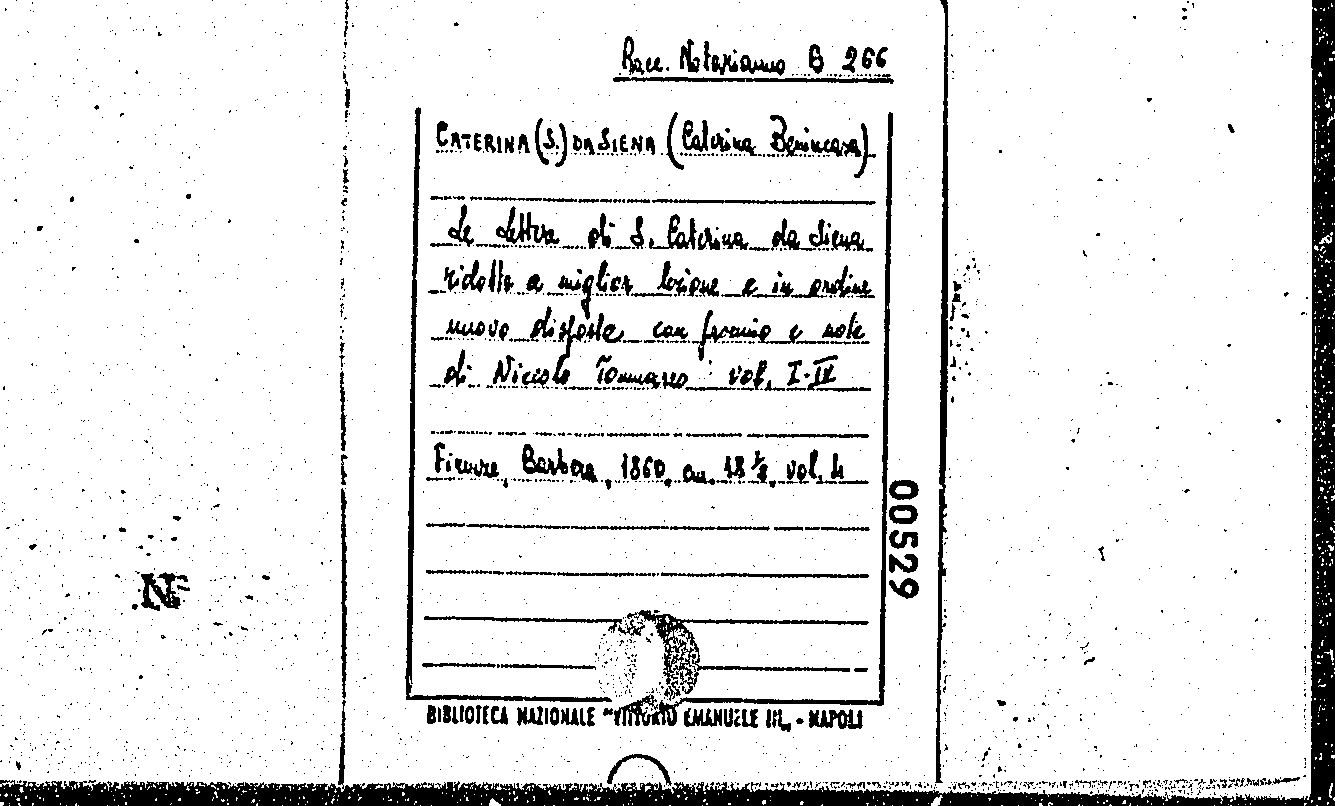 Racc. Notarianno B 266
CATERINA (S.) DA SIENA (Caterina Benincasa)
Le Lettere di S. Caterina da Siena
ridotte a miglior lezione e in ordine
nuovo disposte con proemio e note
di Niccolò Tommaseo vol. I-IV
Firenze, Barbera, 1860, cm. 18 ½, vol. 4
00529
BIBLIOTECA NAZIONALE "VITTORIO EMANUELE III" - NAPOLI